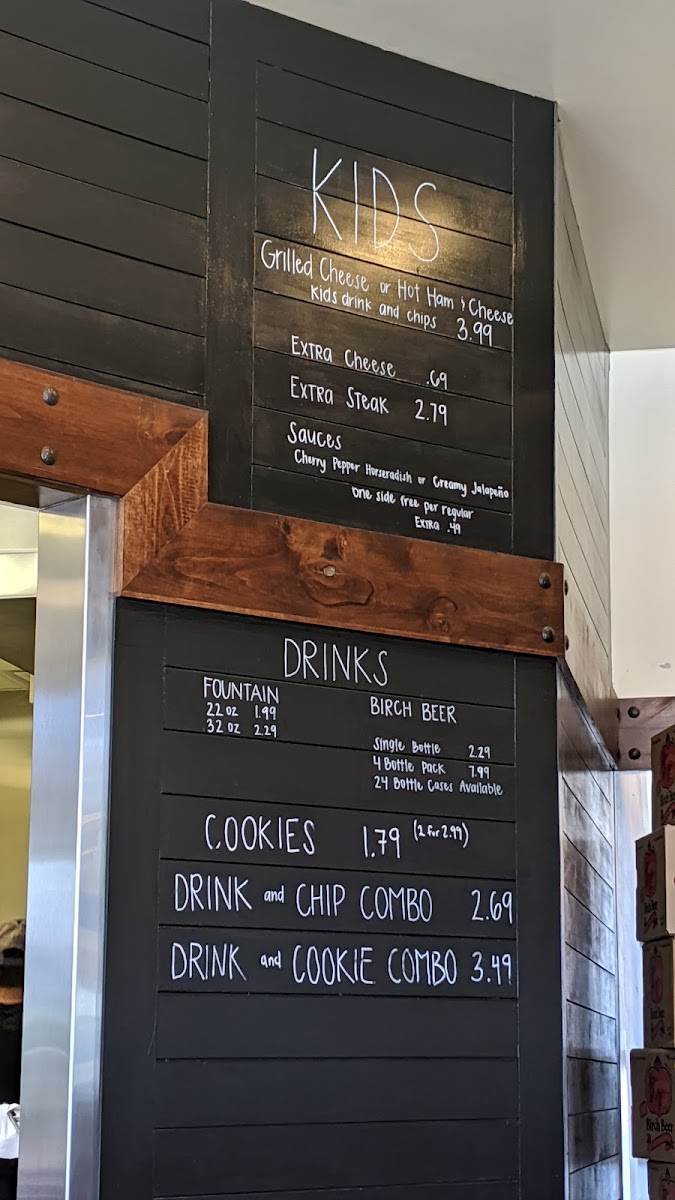 KIDS
Grilled Cheese or Hot Ham & Cheese
Kids drink and chips 3.99
Extra Cheese .69
Extra Steak 2.79
Sauces
Cherry Pepper Horseradish or Creamy Jalapeño
One side free per regular
Extra .49
DRINKS
FOUNTAIN
22 oz 1.99
32 oz 2.29
BIRCH BEER
Single Bottle 2.29
4 Bottle Pack 7.99
24 Bottle Cases Available
COOKIES 1.79 (2 for 2.99)
DRINK and CHIP COMBO 2.69
DRINK and COOKIE COMBO 3.49
Birch Beer